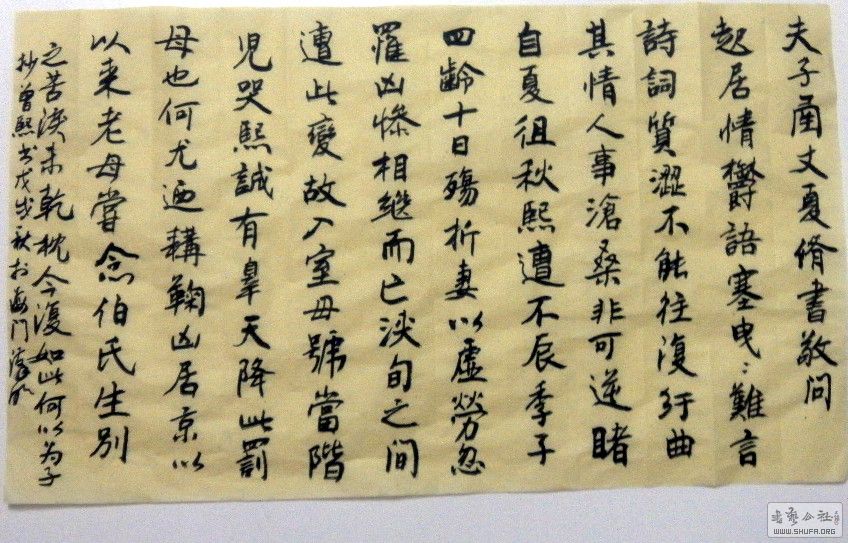 夫子函丈夏脩書敬問
起居情鬱語塞曳〻難言
詩詞質澀不能往復紆曲
其情人事滄桑非可逆睹
自夏徂秋熙遭不辰季子
四齡十日殤折妻以虛勞忽
罹凶慘相繼而亡浹旬之間
遭此變故入室母號當階
児哭熙誠有辠天降此罰
母也何尤迺稱鞠凶居京以
以来老母嘗念伯氏生別
之苦淚未乾枕今復如此何以为子
抄曾熙书戊戌秋於海门
书艺公社
WWW.SHUFA.ORG